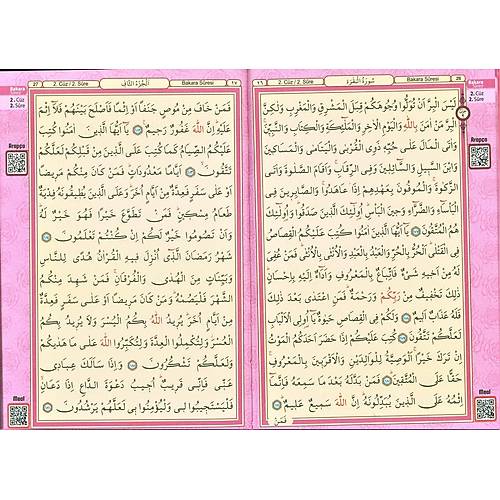 2. Cüz / 2. Sûre
سُورَةُ الْبَقَرَةِ
Bakara Sûresi
26
لَيْسَ الْبِرَّ اَنْ تُوَلُّوا وُجُوهَكُمْ قِبَلَ الْمَشْرِقِ وَالْمَغْرِبِ وَلٰكِنَّ
الْبِرَّ مَنْ اٰمَنَ بِاللّٰهِ وَالْيَوْمِ الْاٰخِرِ وَالْمَلٰٓئِكَةِ وَالْكِتَابِ وَالنَّبِيّٖنَ
وَاٰتَى الْمَالَ عَلٰى حُبِّهٖ ذَوِي الْقُرْبٰى وَالْيَتَامٰى وَالْمَسَاكٖينَ
وَابْنَ السَّبٖيلِ وَالسَّٓائِلٖينَ وَفِي الرِّقَابِ وَاَقَامَ الصَّلٰوةَ وَاٰتَى
الزَّكٰوةَ وَالْمُوفُونَ بِعَهْدِهِمْ اِذَا عَاهَدُوا وَالصَّابِرٖينَ فِي
الْبَأْسَٓاءِ وَالضَّرَّٓاءِ وَحٖينَ الْبَأْسِ اُولٰٓئِكَ الَّذٖينَ صَدَقُوا وَاُولٰٓئِكَ
هُمُ الْمُتَّقُونَ يَٓا اَيُّهَا الَّذٖينَ اٰمَنُوا كُتِبَ عَلَيْكُمُ الْقِصَاصُ
فِي الْقَتْلٰى اَلْحُرُّ بِالْحُرِّ وَالْعَبْدُ بِالْعَبْدِ وَالْاُنْثٰى بِالْاُنْثٰى فَمَنْ عُفِيَ
لَهُ مِنْ اَخٖيهِ شَيْءٌ فَاتِّبَاعٌ بِالْمَعْرُوفِ وَاَدَٓاءٌ اِلَيْهِ بِاِحْسَانٍ
ذٰلِكَ تَخْفٖيفٌ مِنْ رَبِّكُمْ وَرَحْمَةٌ فَمَنِ اعْتَدٰى بَعْدَ ذٰلِكَ
فَلَهُ عَذَابٌ اَلٖيمٌ وَلَكُمْ فِي الْقِصَاصِ حَيٰوةٌ يَٓا اُولِي الْاَلْبَابِ
لَعَلَّكُمْ تَتَّقُونَ كُتِبَ عَلَيْكُمْ اِذَا حَضَرَ اَحَدَكُمُ الْمَوْتُ
اِنْ تَرَكَ خَيْرًا اَلْوَصِيَّةُ لِلْوَالِدَيْنِ وَالْاَقْرَبٖينَ بِالْمَعْرُوفِ
حَقًّا عَلَى الْمُتَّقٖينَ فَمَنْ بَدَّلَهُ بَعْدَ مَا سَمِعَهُ فَاِنَّمَٓا
اِثْمُهُ عَلَى الَّذٖينَ يُبَدِّلُونَهُ اِنَّ اللّٰهَ سَمٖيعٌ عَلٖيمٌ
فَمَنْ
2. Cüz
2. Sûre
Arapça
Meal
27
2. Cüz / 2. Sûre
اَلْجُزْءُ الثَّانِي
Bakara Sûresi
فَمَنْ خَافَ مِنْ مُوصٍ جَنَفًا اَوْ اِثْمًا فَاَصْلَحَ بَيْنَهُمْ فَلَٓا اِثْمَ
عَلَيْهِ اِنَّ اللّٰهَ غَفُورٌ رَحٖيمٌ يَٓا اَيُّهَا الَّذٖينَ اٰمَنُوا كُتِبَ
عَلَيْكُمُ الصِّيَامُ كَمَا كُتِبَ عَلَى الَّذٖينَ مِنْ قَبْلِكُمْ لَعَلَّكُمْ
تَتَّقُونَ اَيَّامًا مَعْدُودَاتٍ فَمَنْ كَانَ مِنْكُمْ مَرٖيضًا
اَوْ عَلٰى سَفَرٍ فَعِدَّةٌ مِنْ اَيَّامٍ اُخَرَ وَعَلَى الَّذٖينَ يُطٖيقُونَهُ فِدْيَةٌ
طَعَامُ مِسْكٖينٍ فَمَنْ تَطَوَّعَ خَيْرًا فَهُوَ خَيْرٌ لَهُ
وَاَنْ تَصُومُوا خَيْرٌ لَكُمْ اِنْ كُنْتُمْ تَعْلَمُونَ
شَهْرُ رَمَضَانَ الَّذٖٓي اُنْزِلَ فٖيهِ الْقُرْاٰنُ هُدًى لِلنَّاسِ
وَبَيِّنَاتٍ مِنَ الْهُدٰى وَالْفُرْقَانِ فَمَنْ شَهِدَ مِنْكُمُ
الشَّهْرَ فَلْيَصُمْهُ وَمَنْ كَانَ مَرٖيضًا اَوْ عَلٰى سَفَرٍ فَعِدَّةٌ
مِنْ اَيَّامٍ اُخَرَ يُرٖيدُ اللّٰهُ بِكُمُ الْيُسْرَ وَلَا يُرٖيدُ بِكُمُ
الْعُسْرَ وَلِتُكْمِلُوا الْعِدَّةَ وَلِتُكَبِّرُوا اللّٰهَ عَلٰى مَا هَدٰيكُمْ
وَلَعَلَّكُمْ تَشْكُرُونَ وَاِذَا سَاَلَكَ عِبَادٖي
عَنّٖي فَاِنّٖي قَرٖيبٌ اُجٖيبُ دَعْوَةَ الدَّاعِ اِذَا دَعَانِ
فَلْيَسْتَجٖيبُوا لٖي وَلْيُؤْمِنُوا بٖي لَعَلَّهُمْ يَرْشُدُونَ
Bakara
2. Cüz
2. Sûre
Arapça
Meal